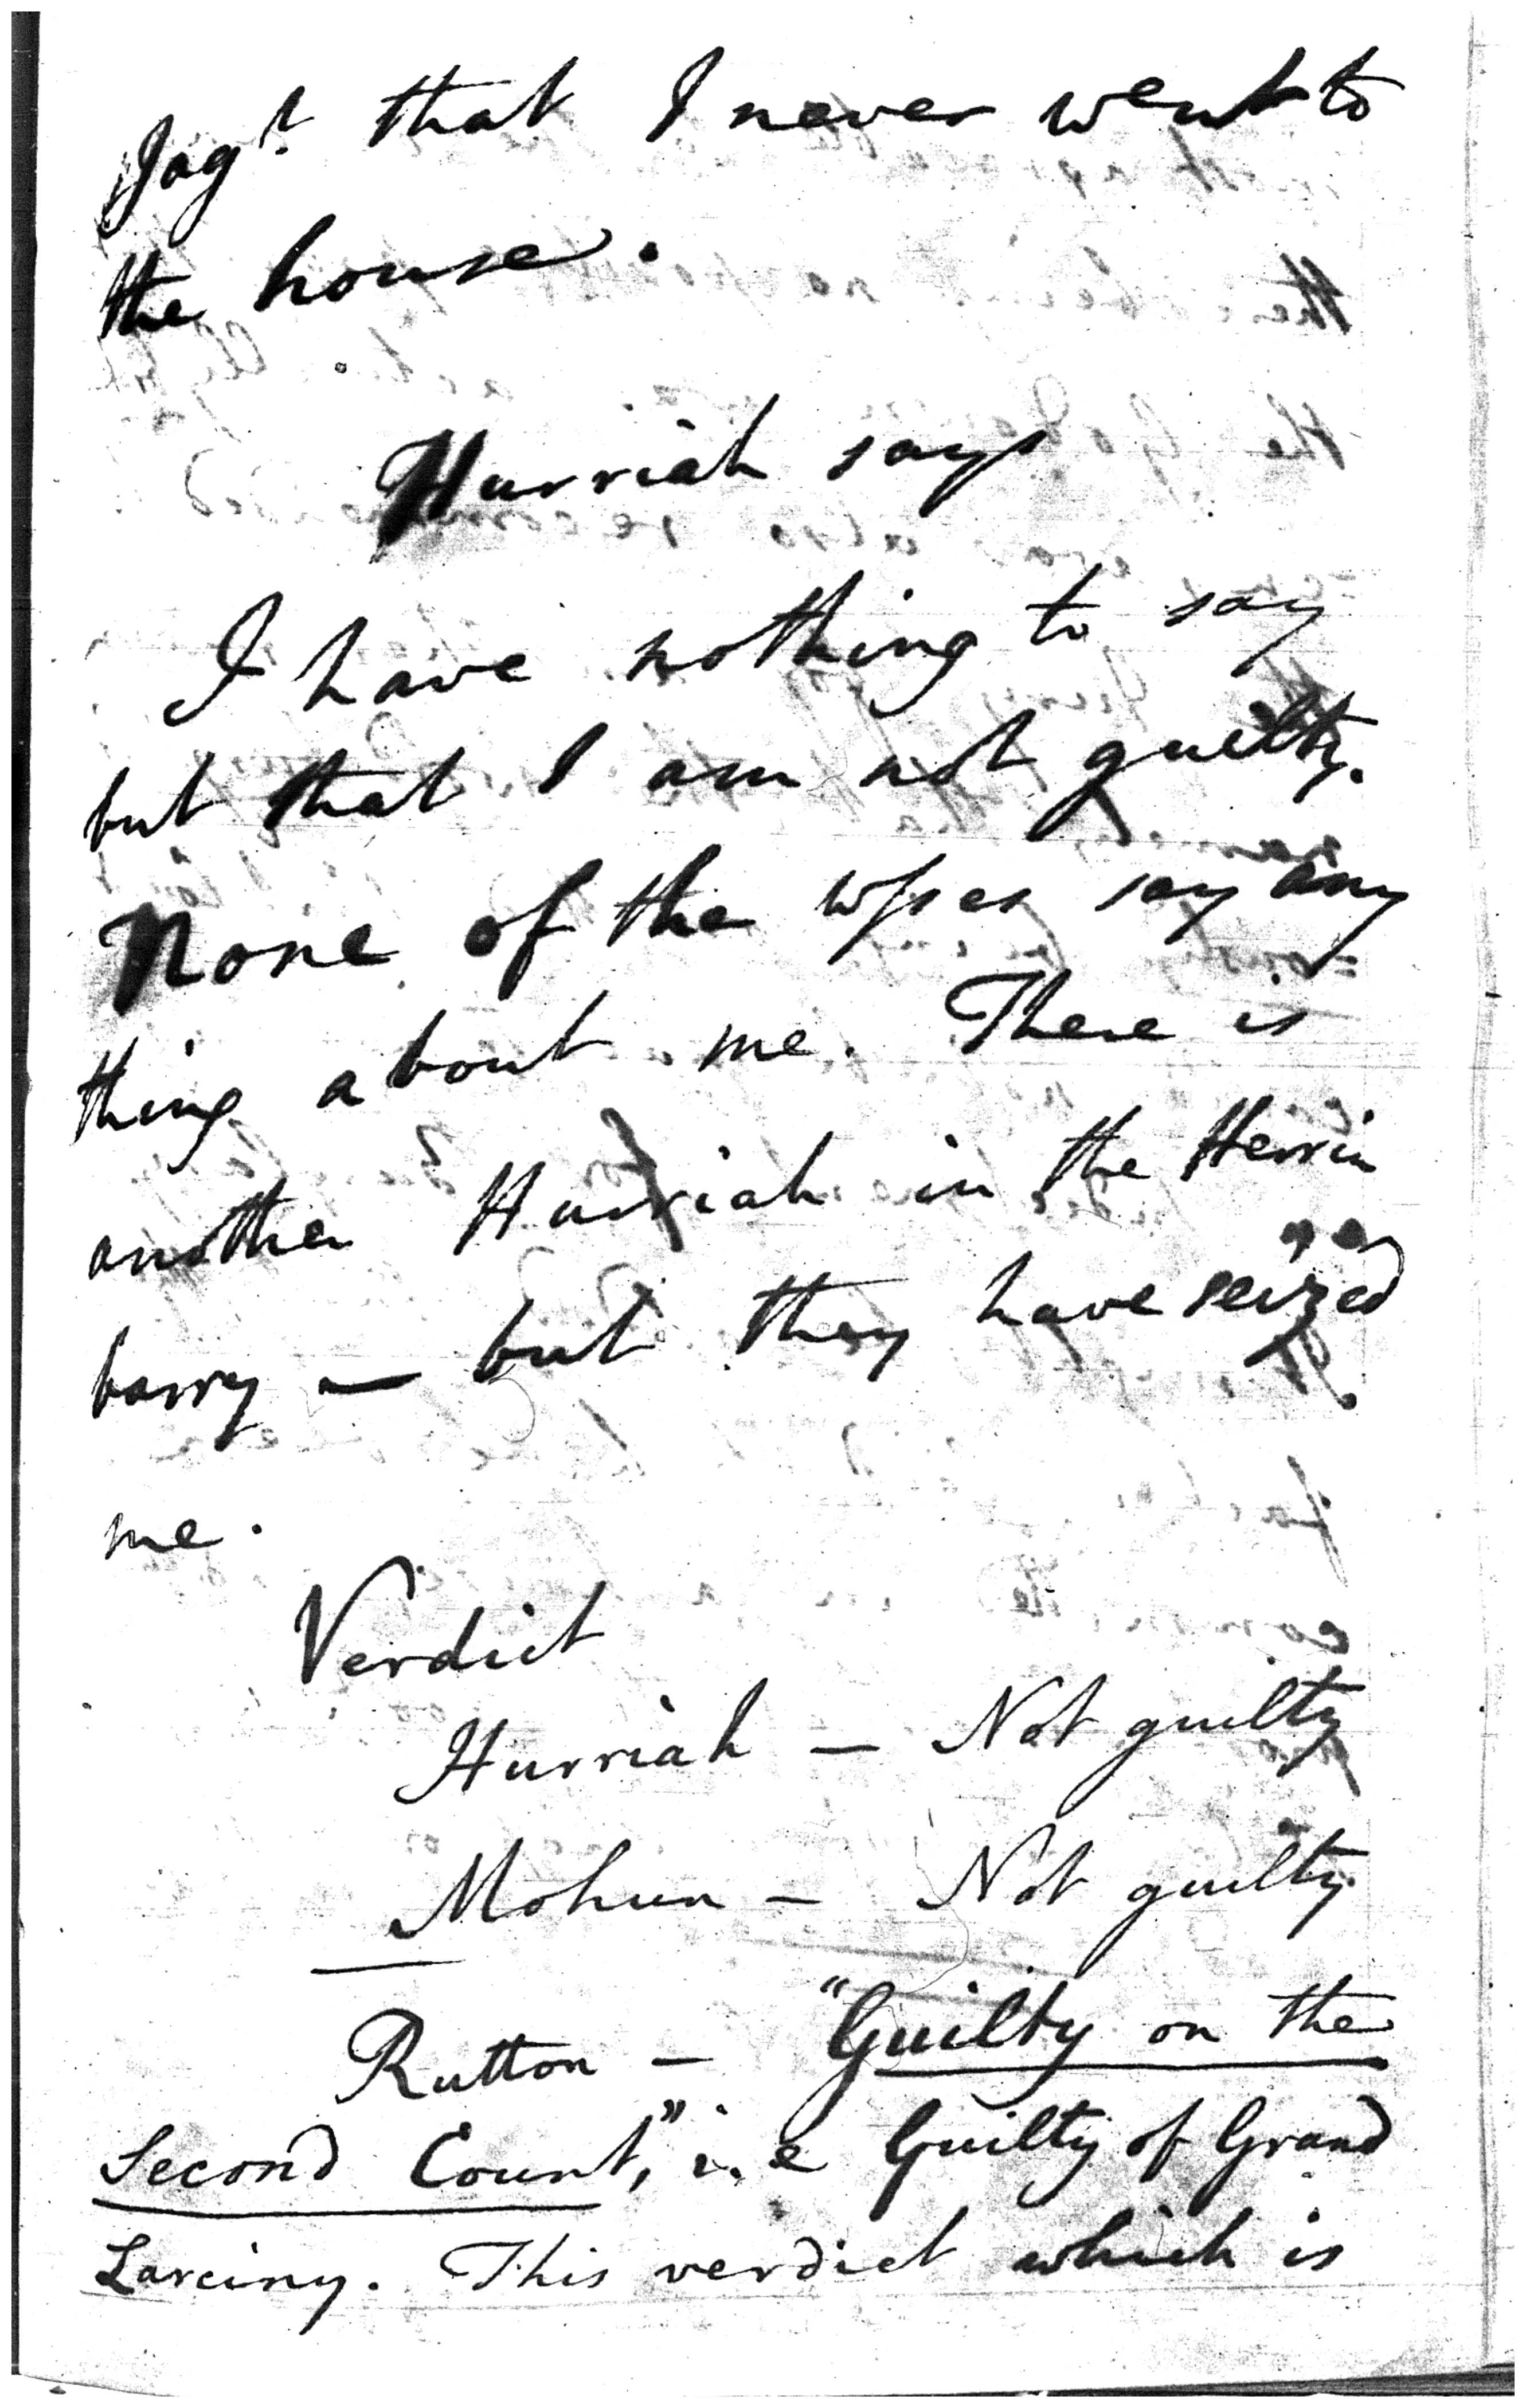 Jagt. that I never went to
the house.
Hurriah says
I have nothing to say
but that I am not guilty.
None of the wsses say any
thing about me. There is
another Hurriah in the Herrin
barry — but they have seized
me.
Verdict
Hurriah — Not guilty
Mohun — Not guilty
Rutton — "Guilty on the
Second Count," i.e Guilty of Grand
Larciny. This verdict which is